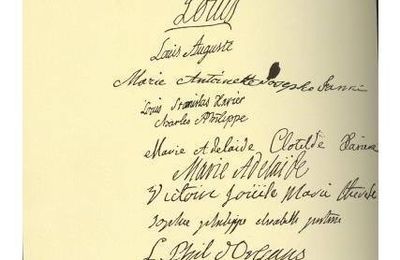 Louis
Louis Auguste
Marie Antoinette Josepha Janne
Louis Stanislas Xavier
Charles Philippe
Marie Adelaide Clotilde Xaviere
Marie Adelaide
Victoire Louise Marie Therese
Sophie philippe elisabeth justine
L. Phil d'Orleans